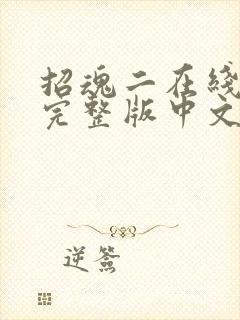 招魂二在线
完整版中文
逆簽